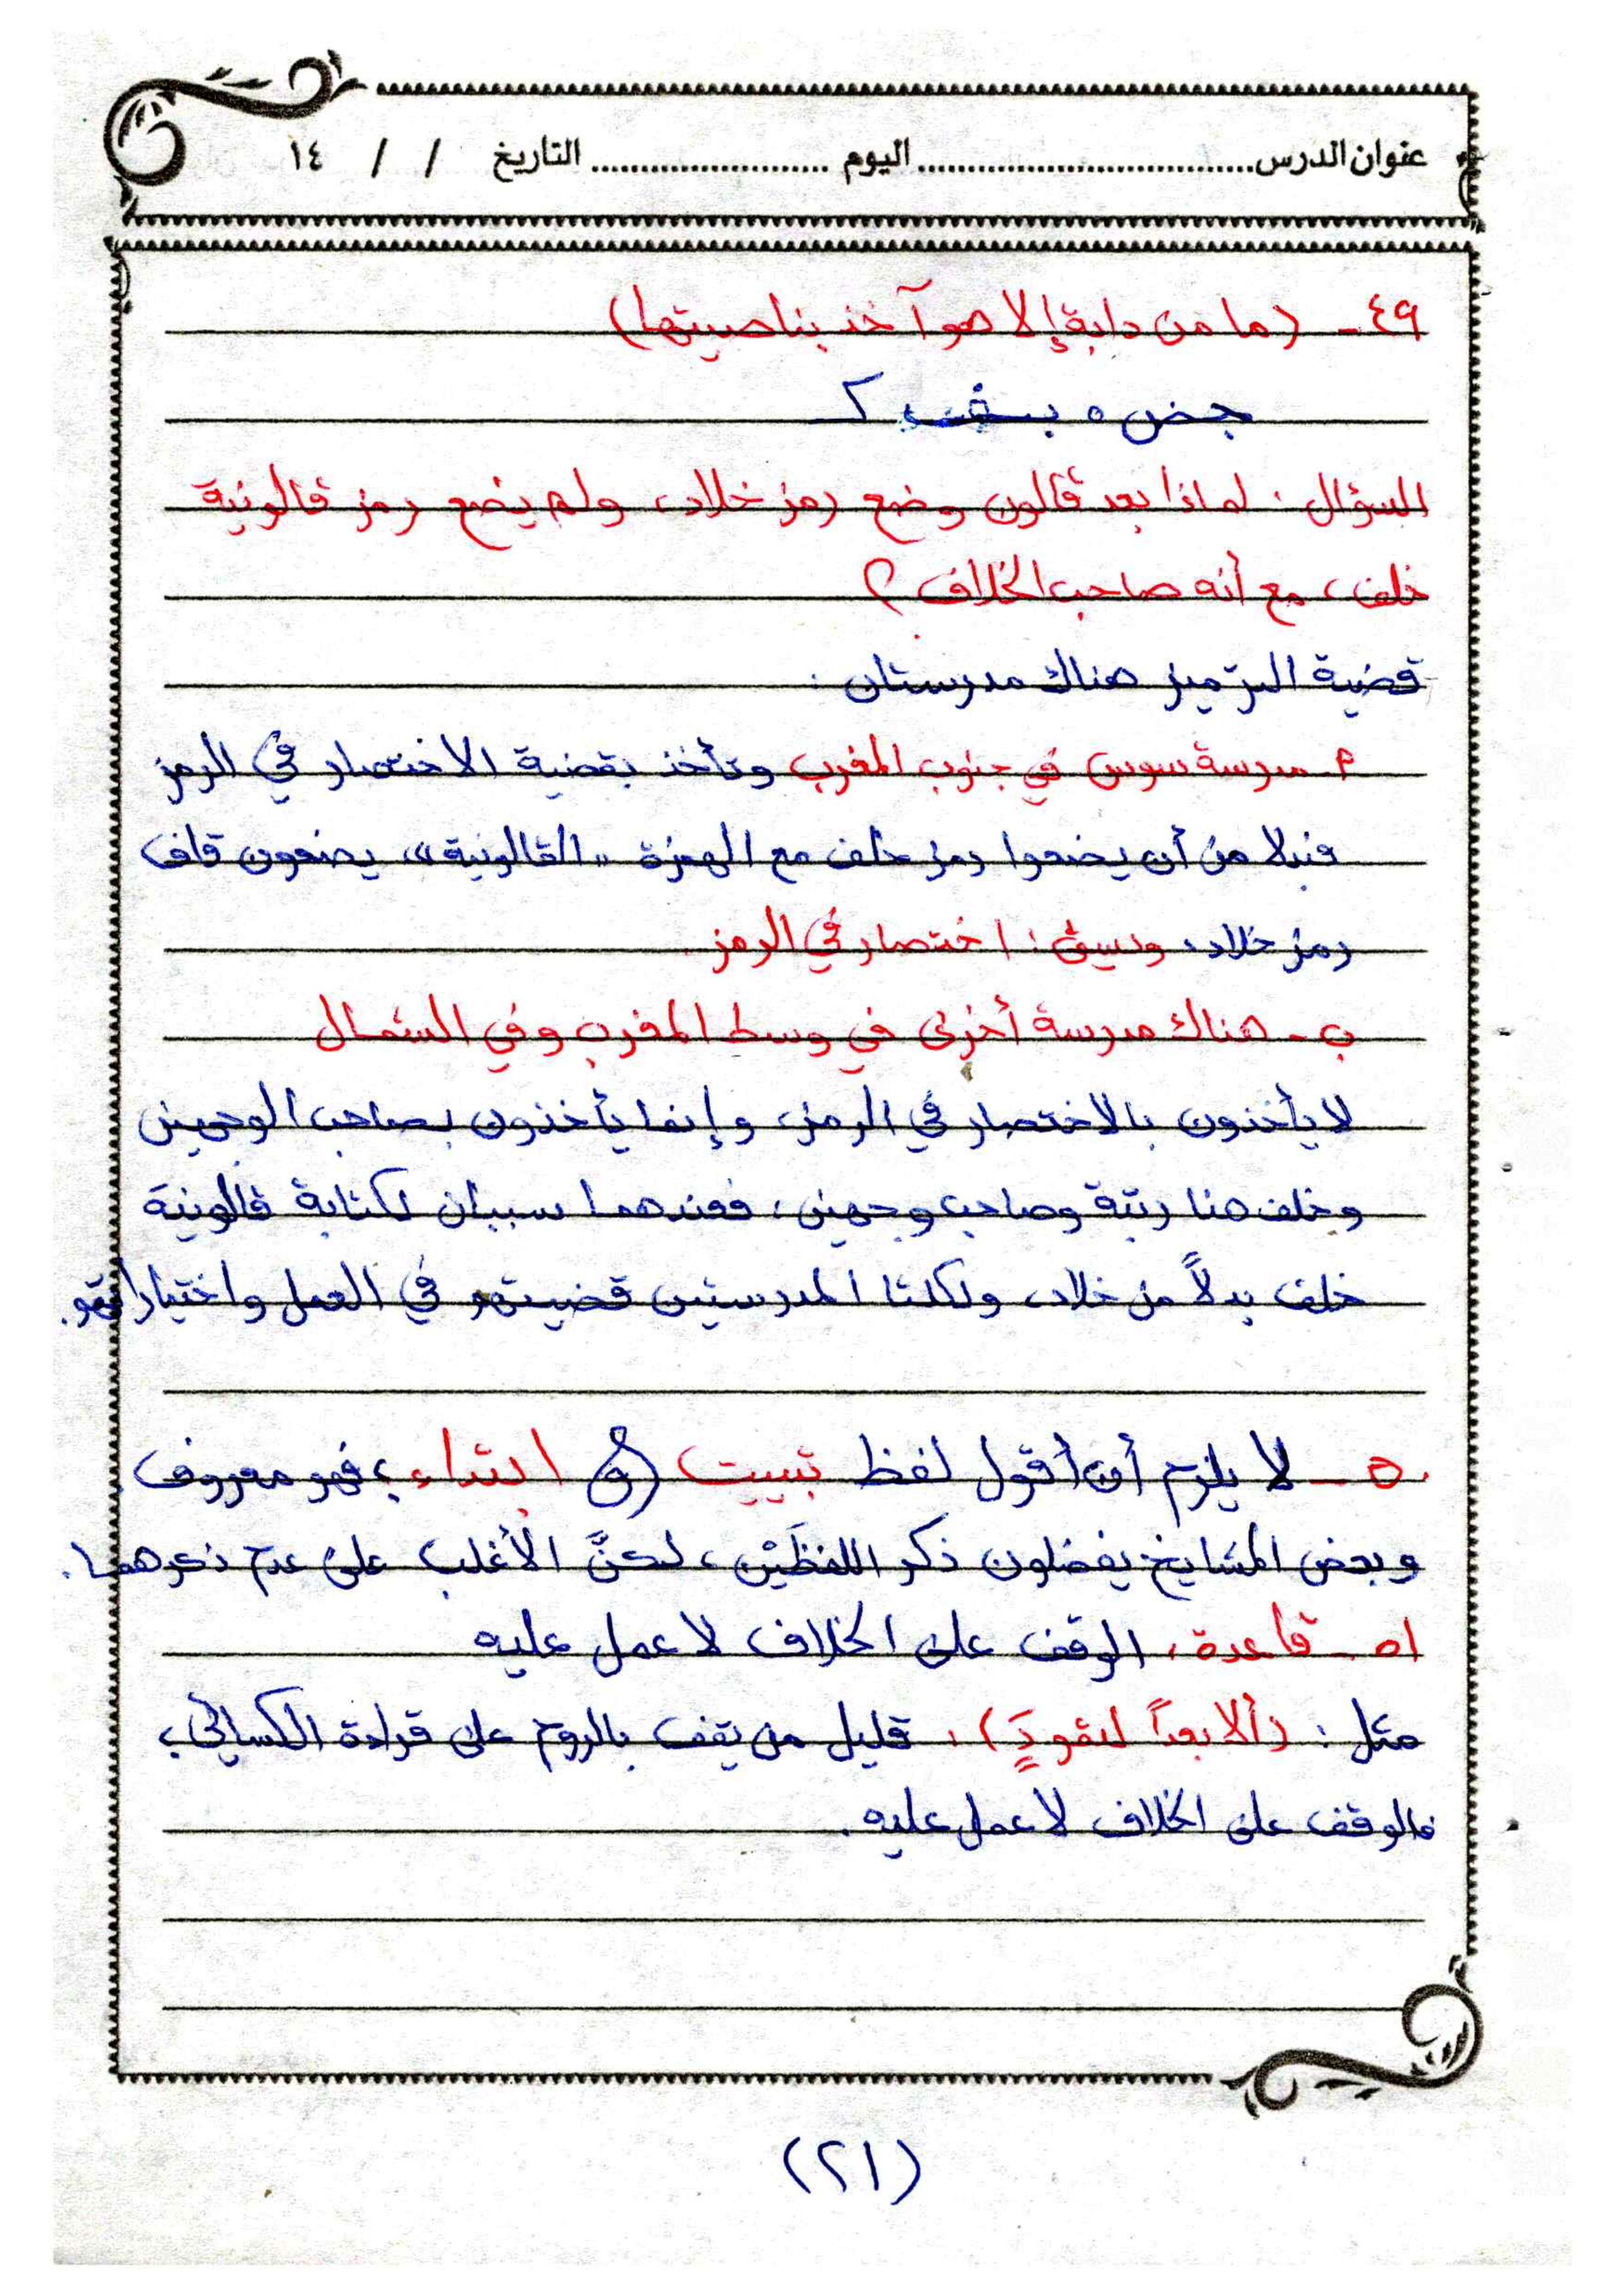 عنوان الدرس................................ اليوم ....................... التاريخ / / ١٤
٤٩ - (ما من دابة إلا هو آخذ بناصيتها)
السؤال: لماذا بعد قالون وضع رمز خلاد، ولم يضع رمز قالونية
خلف، مع أنه صاحب الخلاف؟
قضية الترميز هناك مدرستان:
أ- مدرسة سوس في جنوب المغرب وتأخذ بقضية الاختصار في الرمز
فبدلا من أن يضعوا رمز خلف مع الهمزة "القالونية"، يضعون قاف
رمز خلاد، ويسمى: اختصار في الرمز.
ب- هناك مدرسة أخرى في وسط المغرب وفي الشمال
لا يأخذون بالاختصار في الرمز، وإنما يأخذون بصاحب الوجهين
وخلف هنا رتبة وصاحب وجهين، فعندهما سببان لكتابة قالونية
خلف بدلاً من خلاد، ولكلتا المدرستين قضيتهم في العمل واختياراتهم.
٥٠ - لا يلزم أن أقول لفظ تبييت ابتداء، فهو معروف.
وبعض المشايخ يفضلون ذكر اللفظَيْن، لكنَّ الأغلب على عدم ذكرهما.
٥١ - قاعدة، الوقف على الخلاف لا عمل عليه
مثل: (ألا بعداً لثمودٍ)، قليل من يقف بالروم على قراءة الكسائي،
فالوقف على الخلاف لا عمل عليه.
(٢١)